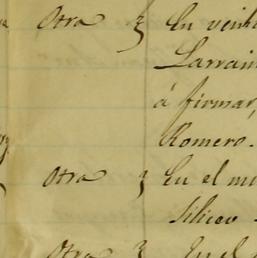 Otra } En veint
Larrain
á firmar,
Romero.
Otra } En el mi
Siliceo
Otra } En el